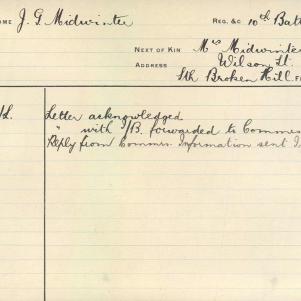 OME J. G Midwinter
REG. &C 10th Batt
NEXT OF KIN Mrs Midwinter
ADDRESS Wilson St.
Sth Broken Hill
Letter acknowledged
" with I/B. forwarded to Commen
Reply from Commen. Information sent